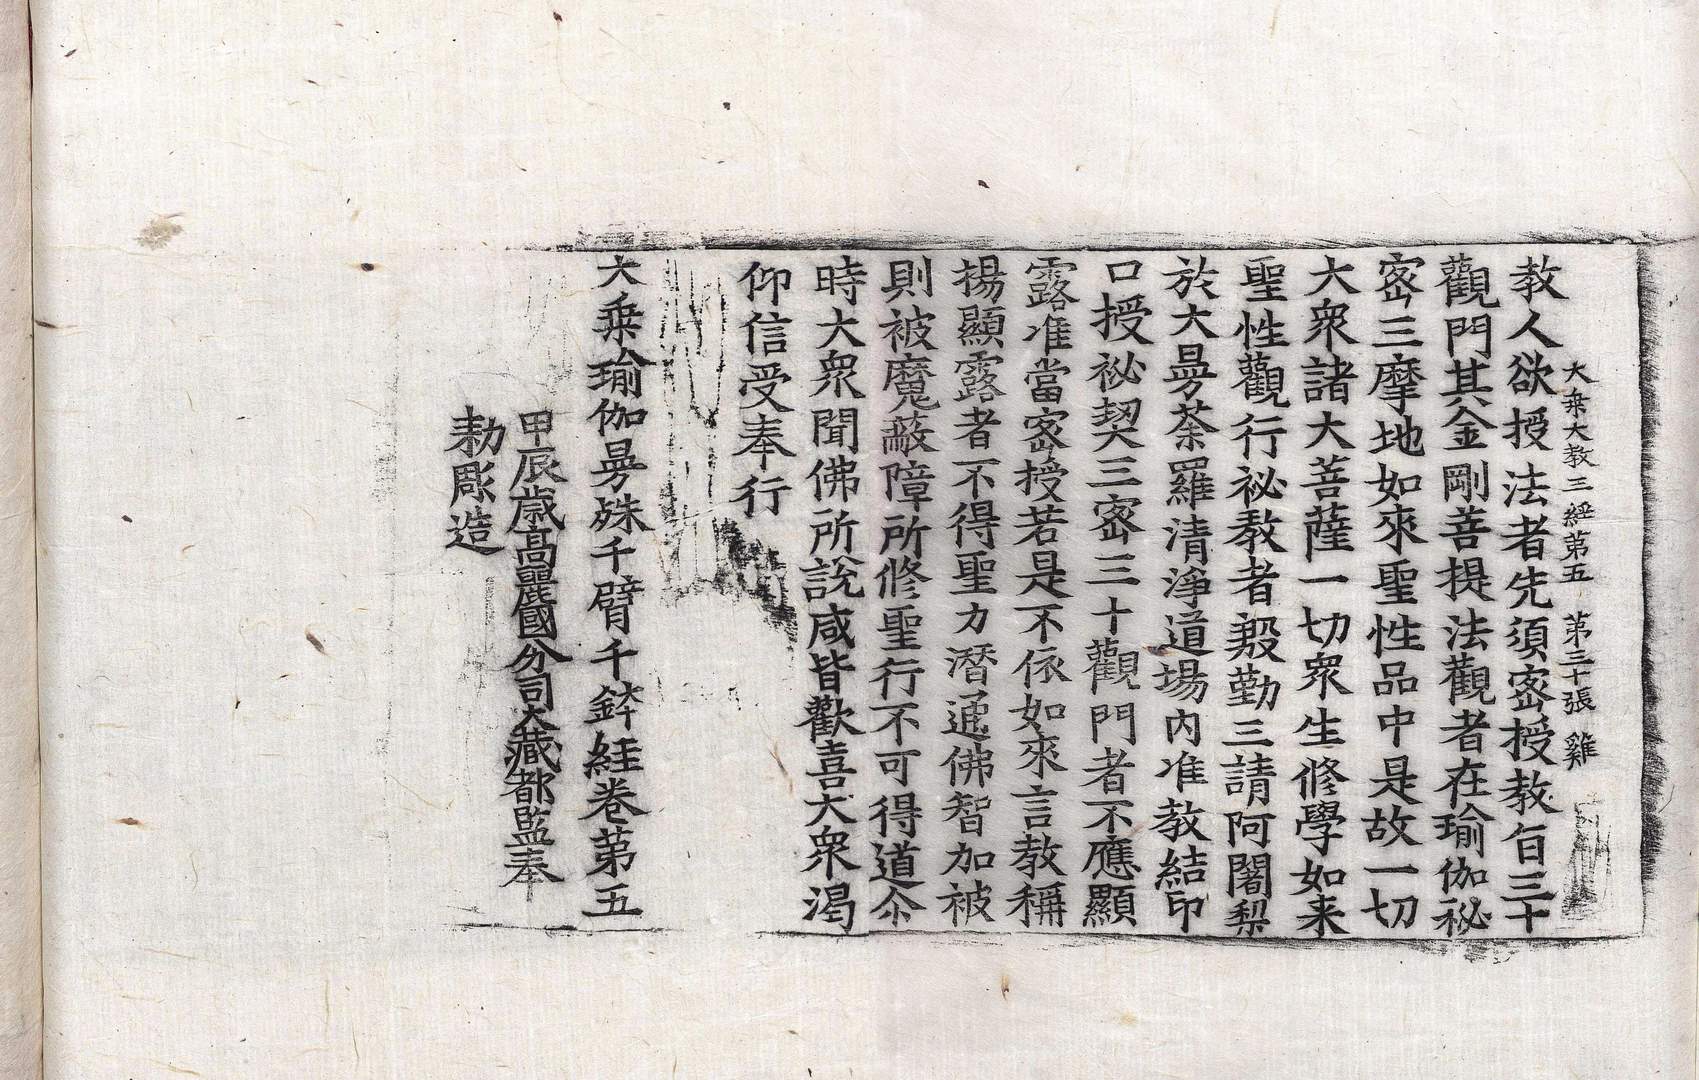 大乗大教三經第五 第三十張 雞
教人欲授法者先須宻授教旨三十
觀門其金剛菩提法觀者在瑜伽祕
宻三摩地如來聖性品中是故一切
大衆諸大菩薩一切衆生修學如来
聖性觀行祕教者殷勤三請阿闍梨
於大曼荼羅清淨道場内准教結印
口授祕契三宻三十觀門者不應顯
露准當宻授若是不依如來言教稱
揚顯露者不得聖力潛通佛智加被
則被魔蔽障所修聖行不可得道尒
時大衆聞佛所說咸皆歡喜大衆渴
仰信受奉行
大乗瑜伽曼殊千臂千鉢經卷第五
甲辰歳高麗國分司大藏都監奉
勑彫造